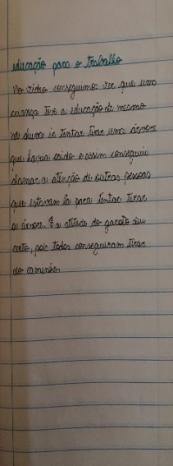 educação para o trabalho
No vídeo conseguimos ver que uma
criança teve a educação de mesmo
na chuva ir tentar tirar uma árvore
que havia caído e assim conseguiu
chamar a atenção de outras pessoas
que estavam la para tentar tirar
a árvore. E a atitude do garoto deu
certo, pois todos conseguiram tirar
do caminho.